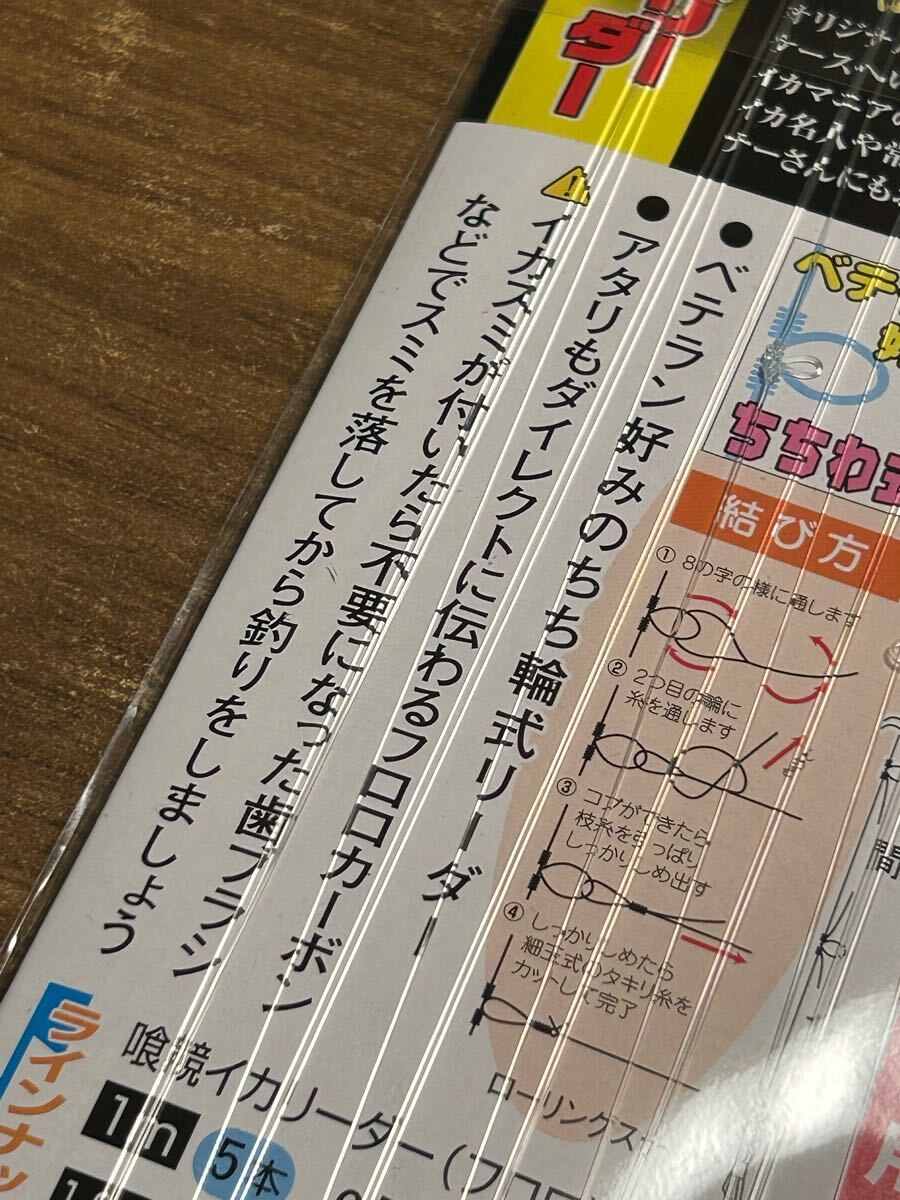 ダー
オリジナ
ケースへ
イカマニアの
イカ名人や
チーさんにも
●ベテラン好みのちち輪式リーダー
●アタリもダイレクトに伝わるフロロカーボン
イカスミが付いたら不要になった歯ブラシ
などでスミを落してから釣りをしましょう
ベテ
ちちわ式
結び方
① 8の字の様に通します
② 2つ目の輪に
糸を通します
③ コブができたら
枝糸を引っぱり
しっかりしめ出す
④ しっかりしめたら
カットして完了
ローリングス
間
ラインナッ
喰鏡イカリーダー(フロロ
1m
5本